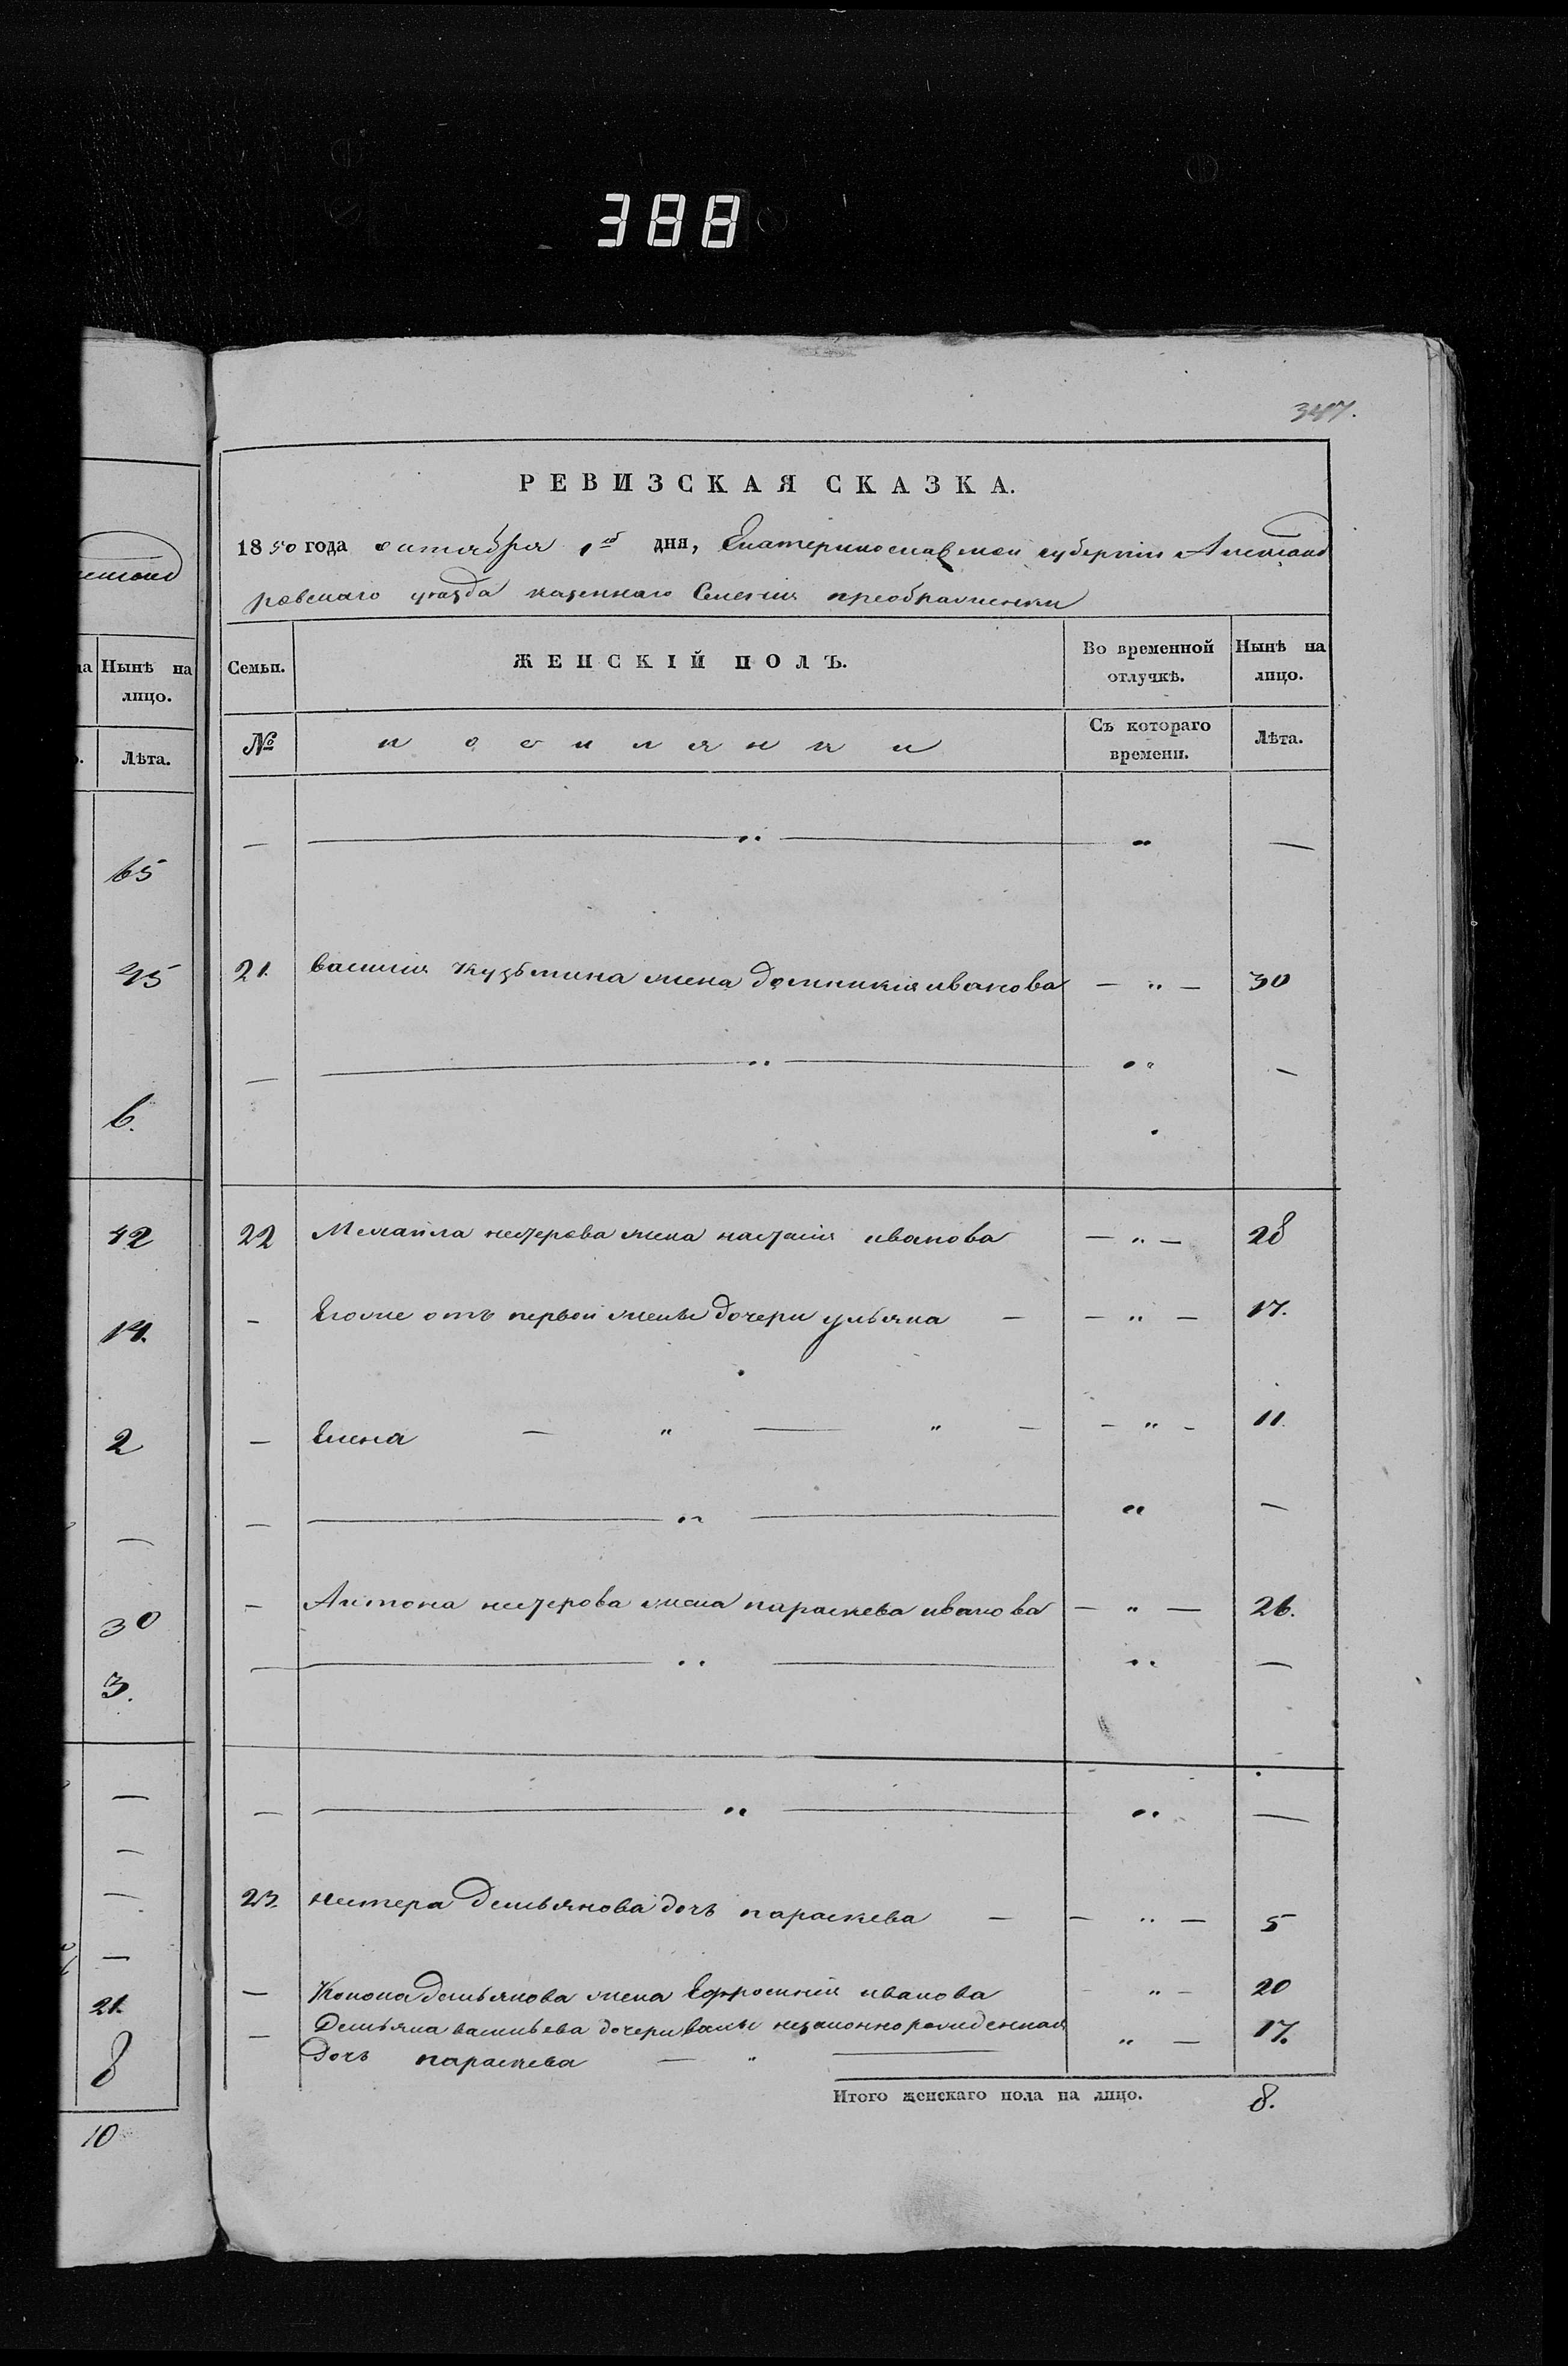 388
347.
емсанд
на
Нынѣ на
лицо.
Лѣта.
65
45
6.
42
14.
2
—
30
3.
—
—
—
—
21.
8
10
РЕВИЗСКАЯ СКАЗКА.
1850 года октября 1го дня, Екатеринославской губернии Александ
ровскаго уѣзда казеннаго Селенія преображенки
Семьи. ЖЕНСКІЙ ПОЛЪ. Во временной отлучкѣ. Нынѣ на лицо.
№ поселянки Съ котораго времени. Лѣта.
— — „ — „ —
21. василія кузьмина жена домникія иванова — „ — 30
— — „ — „ —
22 Михайла нестерова жена настасія иванова — „ — 28
- Егоже отъ первой жены дочери ульяна — — „ — 17.
— Елена — „ — „ — — „ - 11.
— — „ — „ —
- Антона нестерова жена параскева иванова — „ — 26.
— — „ — „ —
— — „ — „ —
23. нестера Демьянова дочь параскева — — „ — 5
— Конона Демьянова жена Ефросинія иванова - „ - 20
— Демьяна васильева дочери незаконнорожденная „ — 17.
Дочь параскева — „ —
Итого женскаго пола на лицо. 8.